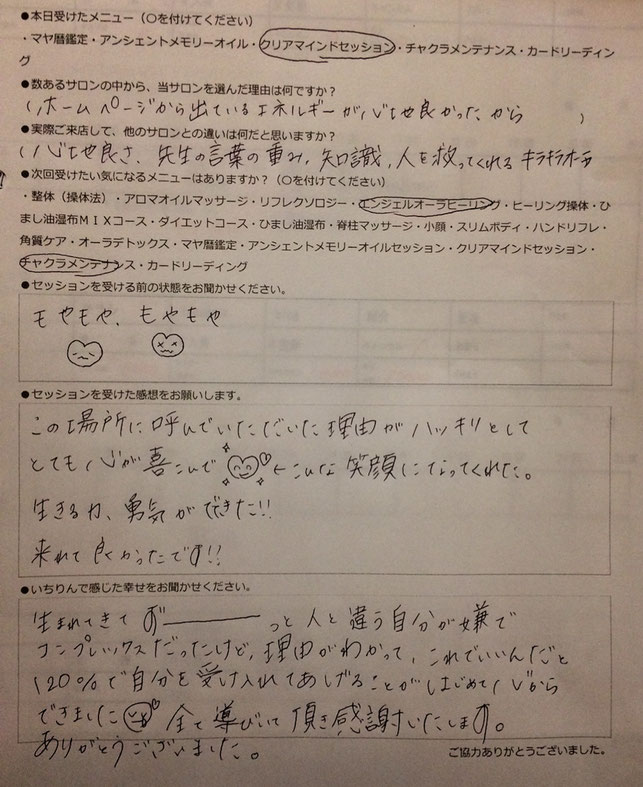 ●本日受けたメニュー（○を付けてください）
・マヤ暦鑑定・アンシェントメモリーオイル・クリアマインドセッション・チャクラメンテナンス・カードリーディン
グ
●数あるサロンの中から、当サロンを選んだ理由は何ですか？
（ホームページから出ているエネルギーが心地良かったから　）
●実際ご来店して、他のサロンとの違いは何だと思いますか？
（心地良さ、先生の言葉の重み、知識、人を救ってくれるキラキラオーラ
●次回受けたい気になるメニューはありますか？（○を付けてください）
・整体（操体法）・アロマオイルマッサージ・リフレクソロジー・エンジェルオーラヒーリング・ヒーリング操体・ひ
まし油湿布ＭＩＸコース・ダイエットコース・ひまし油湿布・脊柱マッサージ・小顔・スリムボディ・ハンドリフレ・
角質ケア・オーラデトックス・マヤ暦鑑定・アンシェントメモリーオイルセッション・クリアマインドセッション・
チャクラメンテナンス・カードリーディング
●セッションを受ける前の状態をお聞かせください。
もやもや、もやもや
●セッションを受けた感想をお願いします。
この場所に呼んでいただいた理由がハッキリとして
とても心が喜こんで ←こんな笑顔になってくれた。
生きる力、勇気ができた!!
来れて良かったです!!
●いちりんで感じた幸せをお聞かせください。
生まれてきてずーーーっと人と違う自分が嫌で
コンプレックスだったけど、理由がわかって、これでいいんだと
120%で自分を受け入れてあげることがはじめて心から
できました 全て導びいて頂き感謝いたします。
ありがとうございました。
ご協力ありがとうございました。